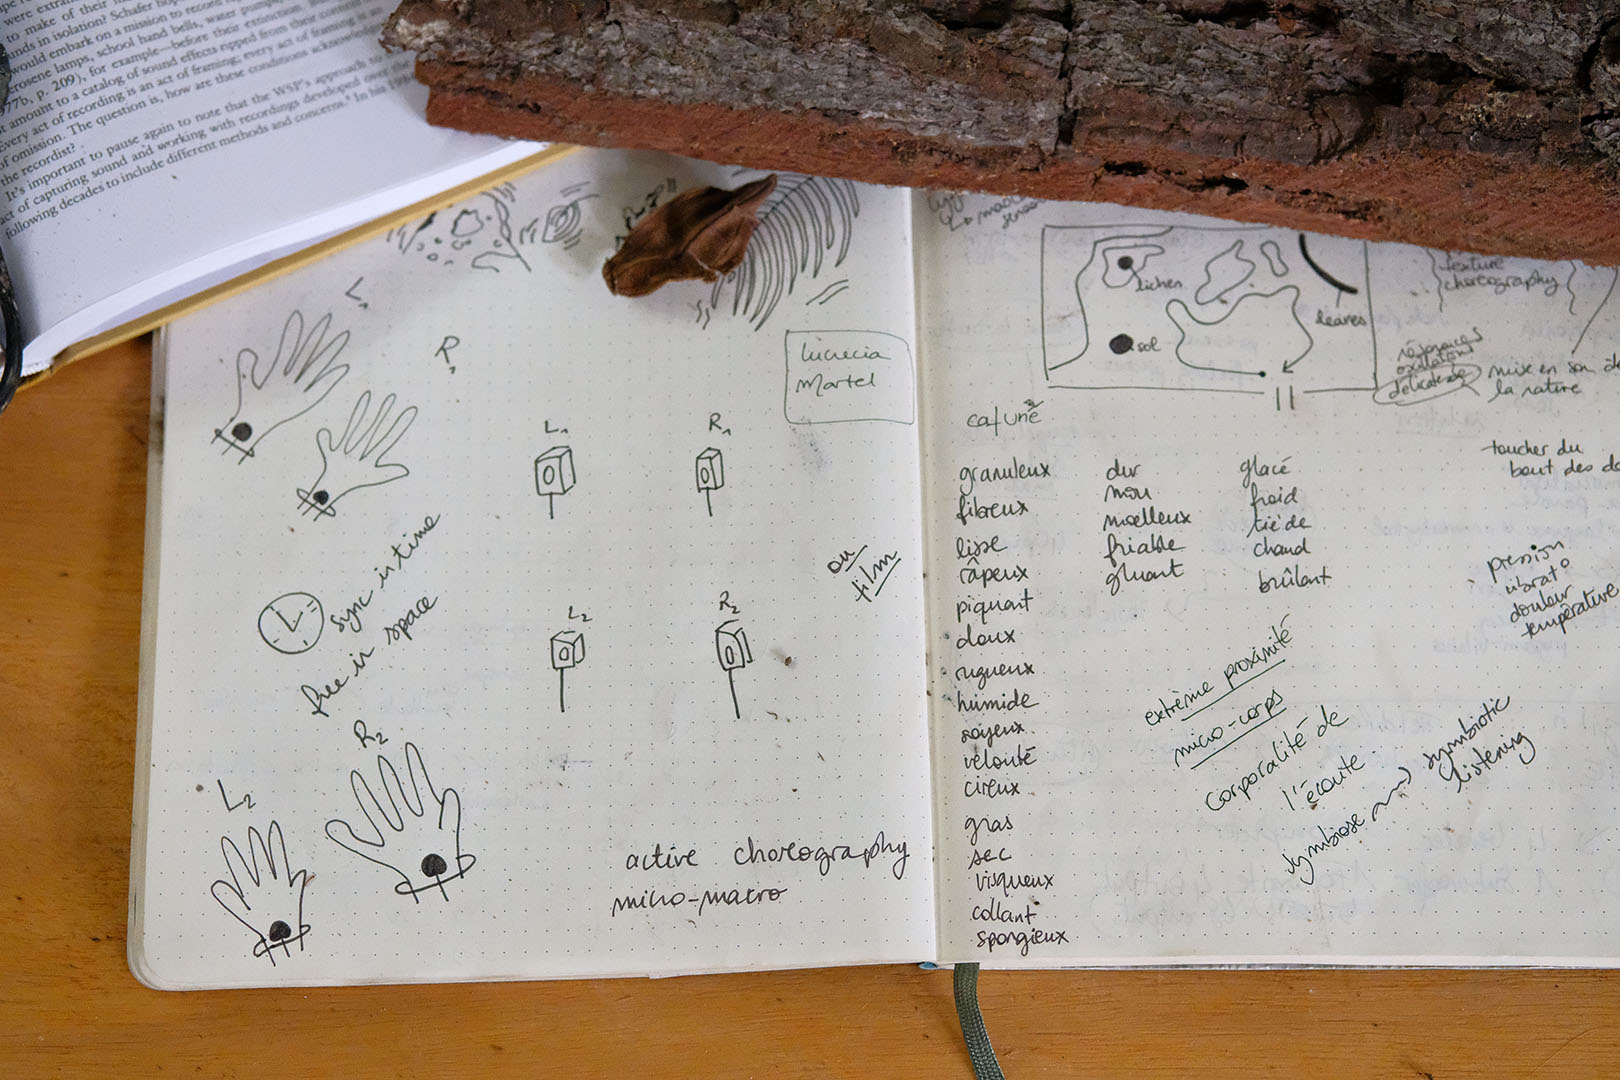 were extra
to make of their
unds in isolation? Schafer
would embark on a mission to record
erosene lamps, school hand bells, water pumps,
77b, p. 209), for example—before their extinction.
t amount to a catalog of sound effects ripped from their
Every act of recording is an act of framing; every act of framing
of omission. The question is, how are these conditions acknowle
the recordist?
It's important to pause again to note that the WSP's approach to
act of capturing sound and working with recordings developed over
following decades to include different methods and concerns. In his
L1
R1
lucrecia
martel
L1
R1
sync in time
free in space
ou
film
L2
R2
L2
R2
active choreography
micro-macro
lichen
sol
leaves
texture
choreography
délicatesse
mise en son de
la nature
cafuné
granuleux
fibreux
lisse
râpeux
piquant
doux
rugueux
humide
soyeux
velouté
cireux
gras
sec
visqueux
collant
spongieux
dur
mou
moelleux
friable
gluant
glacé
froid
tiède
chaud
brûlant
toucher du
bout des do
pression
vibrato
douleur
température
extrême proximité
micro-corps
corporalité de
l'écoute
symbiose
symbiotic
listening